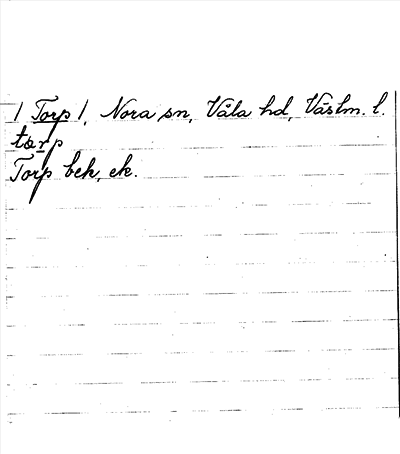 / Torp /, Nora sn, Våla hd, Västm. l.
tɔrp
Torp bek, ek.